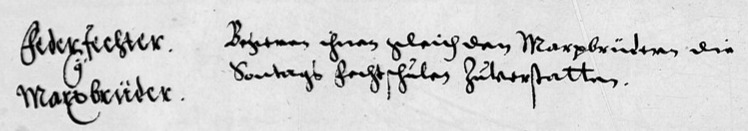 Federfechter.
&
Marxbrüder.
Begeren ihnen gleich den Marxbrüdern die
Sontags fechtschulen Zuverstatten.